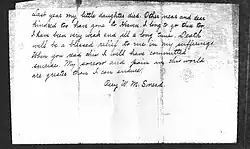 last year my little daughter died. Other near and dear
kindred too have gone to Heaven. I long to go there too.
I have been very weak and ill a long time. Death
will be a blessed relief to me in my sufferings.
When you read this I will have committed
suicide. My sorrow and pain in this world
are greater than I can endure.
W. M. Smead.